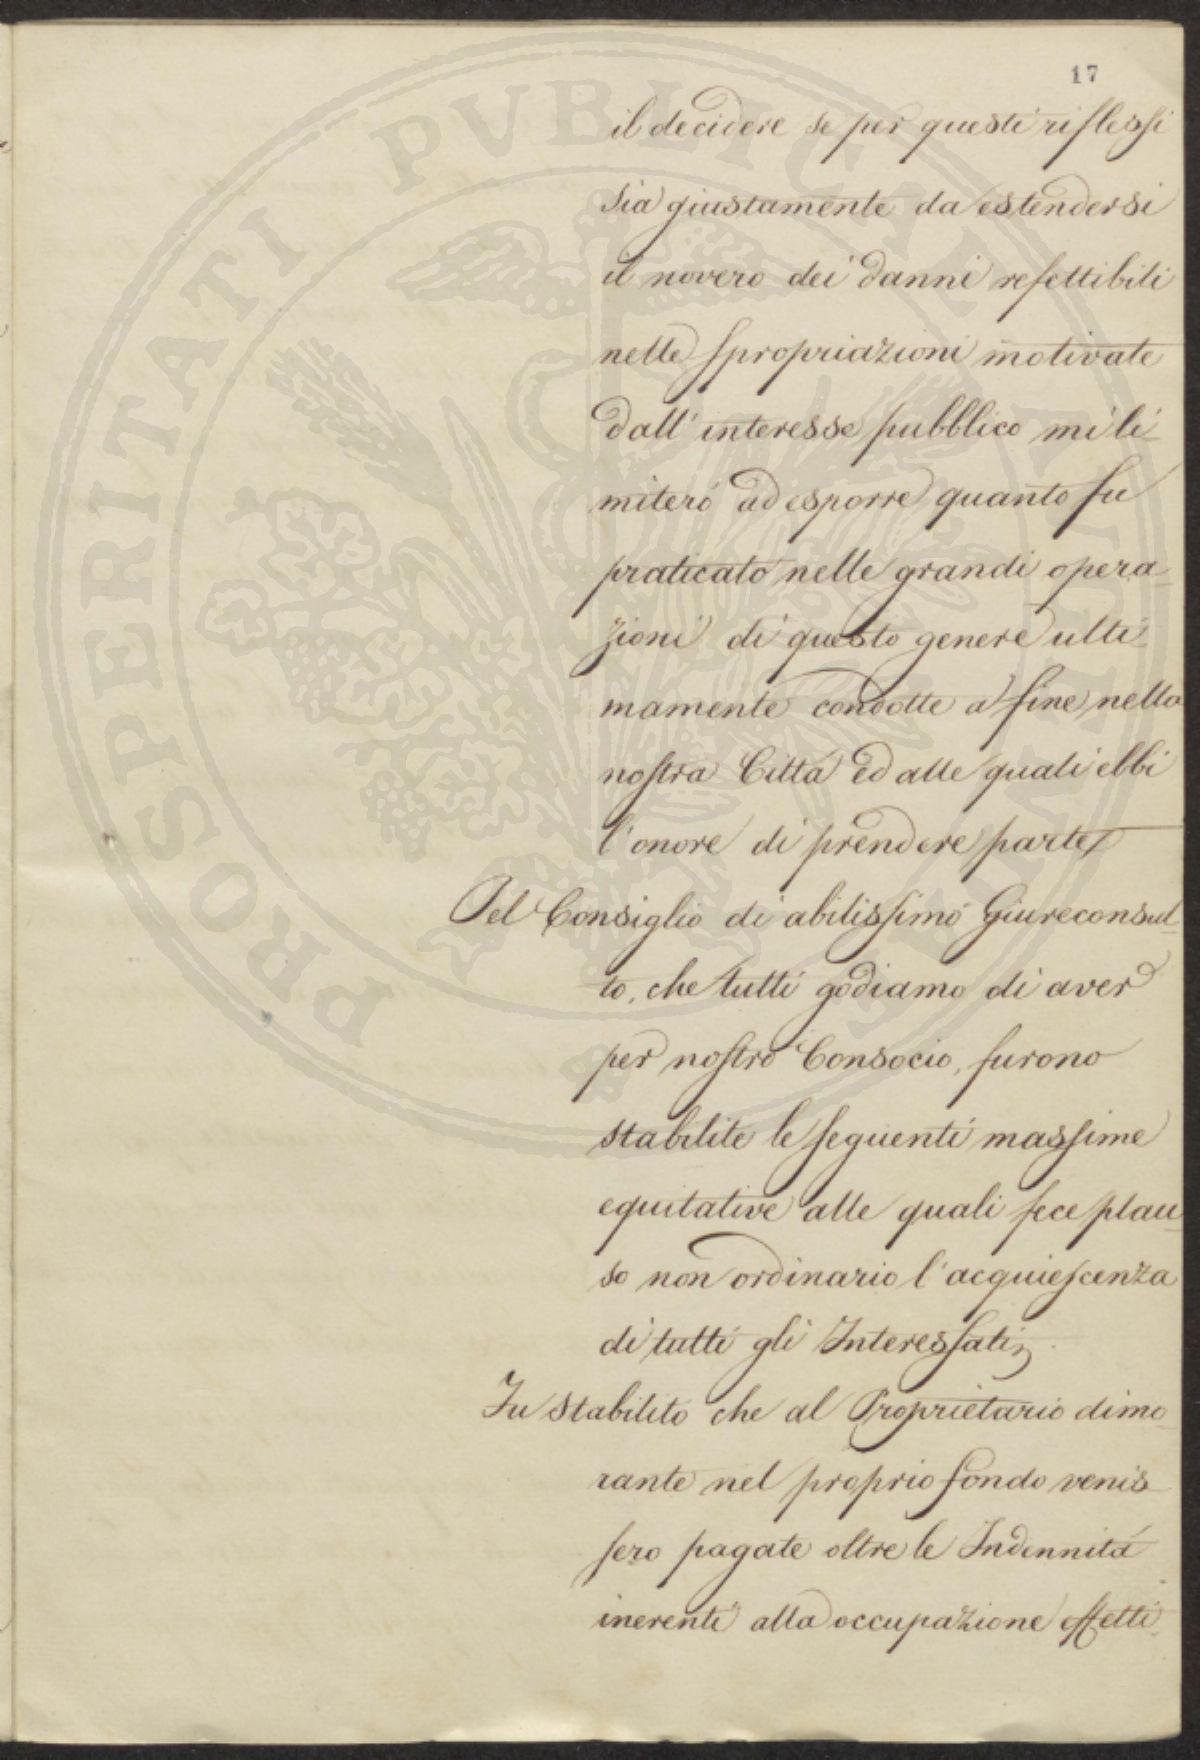 17
il decidere se per questi riflessi
sia giustamente da estendersi
il novero dei danni refettibili
nelle spropriazioni motivate
dall'interesse pubblico mi li-
miterò ad esporre quanto fu
praticato nelle grandi opera-
zioni di questo genere ulti-
mamente condotte a fine nella
nostra Città ed alle quali ebbi
l'onore di prendere parte
Pel Consiglio di abilissimo Giureconsul-
to, che tutti godiamo di aver
per nostro Consocio, furono
stabilite le seguenti massime
equitative alle quali fece plau-
so non ordinario l'acquiescenza
di tutti gli Interessati;
Fu stabilito che al Proprietario dimo-
rante nel proprio fondo venis-
sero pagate oltre le Indennità
inerenti alla occupazione effetti-
PROSPERITATI PVBLICAE